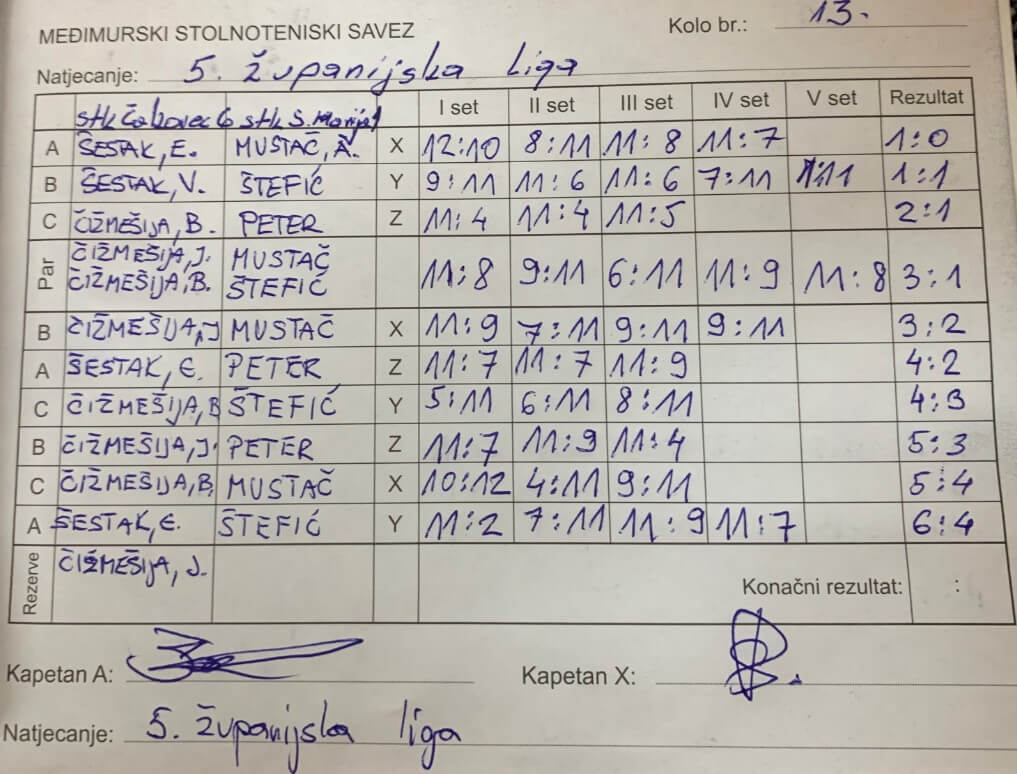 MEĐIMURSKI STOLNOTENISKI SAVEZ Kolo br.: 13.
Natjecanje: 5. Županijska Liga
stk Čakovec 6 stk S. Marija 1 I set II set III set IV set V set Rezultat
A ŠESTAK, E. MUSTAČ, A. X 12:10 8:11 11:8 11:7 1:0
B ŠESTAK, V. ŠTEFIĆ Y 9:11 11:6 11:6 7:11 :11 1:1
C ČIŽMEŠIJA, B. PETER Z 11:4 11:4 11:5 2:1
Par ČIŽMEŠIJA, J. MUSTAČ
ČIŽMEŠIJA, B. ŠTEFIĆ 11:8 9:11 6:11 11:9 11:8 3:1
B ČIŽMEŠIJA, J MUSTAČ X 11:9 7:11 9:11 9:11 3:2
A ŠESTAK, E. PETER Z 11:7 11:7 11:9 4:2
C ČIŽMEŠIJA, B ŠTEFIĆ Y 5:11 6:11 8:11 4:3
B ČIŽMEŠIJA, J. PETER Z 11:7 11:9 11:4 5:3
C ČIŽMEŠIJA, B. MUSTAČ X 10:12 4:11 9:11 5:4
A ŠESTAK, E. ŠTEFIĆ Y 11:2 7:11 11:9 11:7 6:4
Rezerve ČIŽMEŠIJA, J. Konačni rezultat: :
Kapetan A: Kapetan X:
Natjecanje: 5. županijska liga